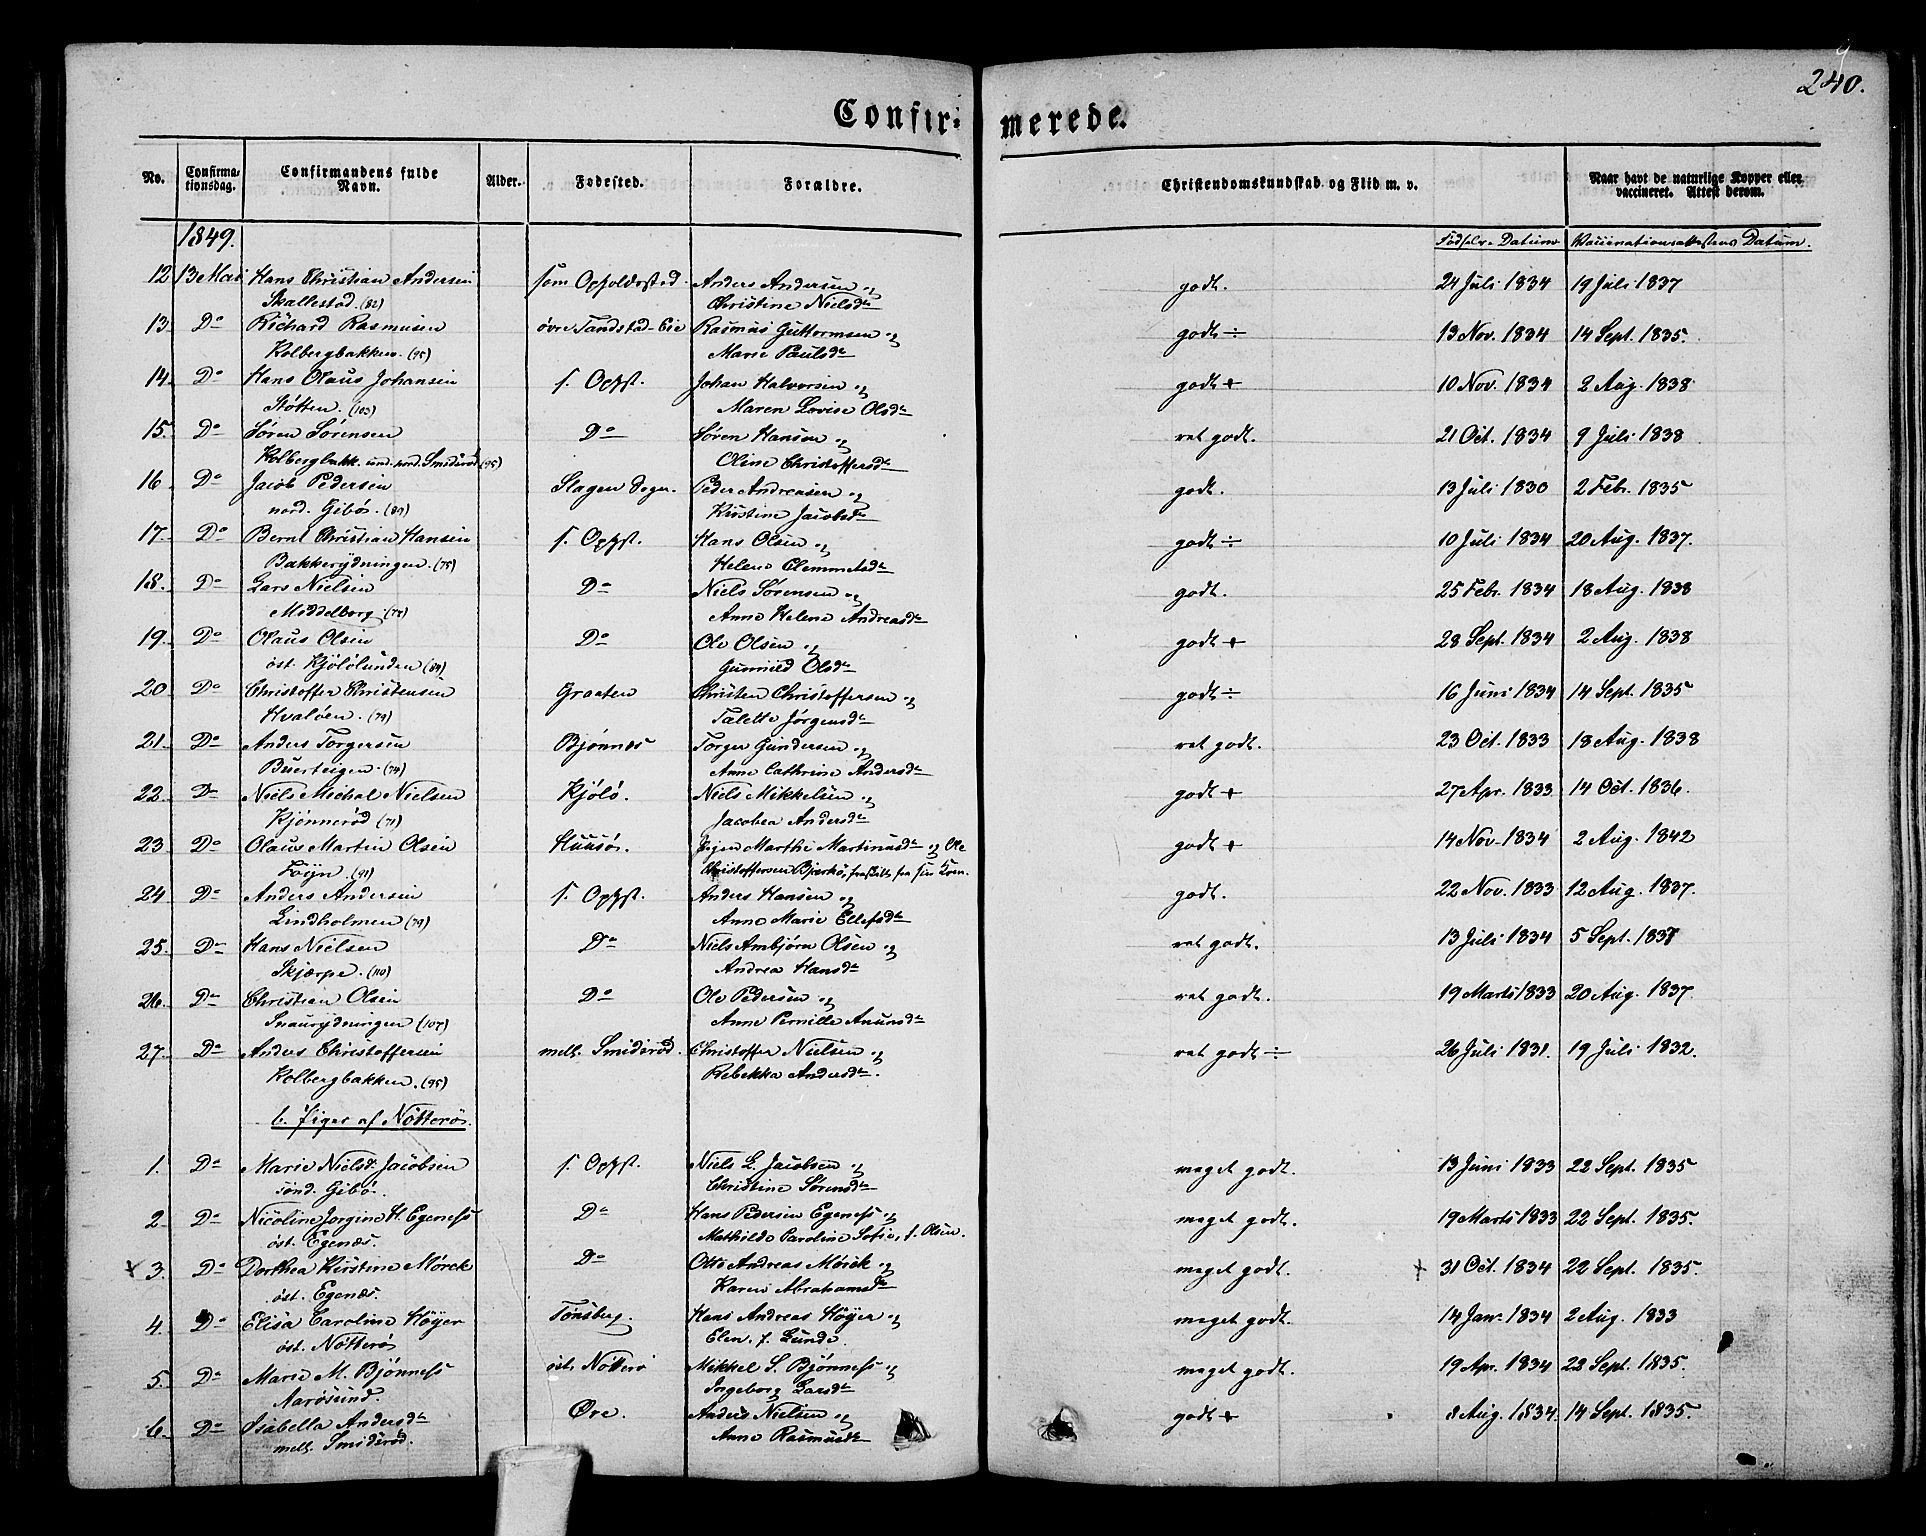 240.
Confir- merede.
No. Confirmationsdag. Confirmandens fulde Navn. Alder. Fødested. Forældre. Christendomskundskab og Flid m. v. Naar havt de naturlige Kopper eller vaccineret. Attest derom.
1849. Fødsels-Datum Vaccinationsattestens Datum.
12 13 Mai Hans Christian Andersen som Opholdssted Anders Andersen og godt. 24 Juli 1834 19 Juli 1837
Skallestad (82) Christine Nielsdr
13. Do Richard Rasmusen øvre Tandstad-Eie Rasmus Guttormsen og godt ÷ 13 Nov. 1834 14 Sept. 1835.
Kolbergbakken. (95) Marie Paulsdr
14. Do Hans Olaus Johansen s. Opst. Johan Halvorsen og godt + 10 Nov. 1834 2 Aug. 1838.
Støtten. (103) Maren Lovise Olsdr
15. Do Søren Sørensen Do Søren Hansen og ret godt. 21 Oct. 1834 9 Juli 1838
Kolbergbakk. und. nord. Smiderød (95) Oline Christoffersdr
16. Do Jacob Pedersen Slagen Sogn. Peder Andreasen og godt. 13 Juli 1830 2 Febr. 1835
nord. Gibø. (89) Kirstine Jacobsdr
17. Do Bernt Christian Hansen s. Opst. Hans Olsen og godt ÷ 10 Juli 1834 20 Aug. 1837.
Bakkerydningen. (75) Helene Clemmetsdr
18. Do Lars Nielsen Do Niels Sørensen og godt. 25 Febr. 1834 18 Aug. 1838
Middelborg. (78) Anne Helene Andreasdr
19. Do Olaus Olsen Do Ole Olsen og godt + 28 Sept. 1834 2 Aug. 1838
øst. Kjølølunden (84) Gunnild Olsdr
20. Do Christoffer Christensen Graaten Christen Christoffersen og godt ÷ 16 Juni 1834 14 Sept. 1835
Hvaløen. (79) Talette Jørgensdr
21. Do Anders Torgersen Bjønnes Torger Gundersen og ret godt. 23 Oct. 1833 18 Aug. 1838
Buerteigen. (74) Anne Cathrine Andersdr
22. Do Niels Michal Nielsen Kjølø. Niels Mikkelsen og godt + 27 Apr. 1833 14 Oct. 1836.
Kjønnerød (71) Jacobea Andersdr
23 Do Olaus Martin Olsen Huusø. Pigen Marthe Martinusdr og Ole godt + 14 Nov. 1834 2 Aug. 1842
Føyn. (91) Christoffersen Bjerkø, fraskilt fra sin Kone.
24 Do Anders Andersen s. Opst. Anders Hansen og godt. 22 Nov. 1833 12 Aug. 1837.
Lindholmen (79) Anne Marie Ellefsdr
25. Do Hans Nielsen Do Niels Ambjørn Olsen og ret godt. 13 Juli 1834 5 Sept. 1837
Skjærpe. (110) Andrea Hansdr
26. Do Christian Olsen Do Ole Pedersen og ret godt. 19 Marts 1833 20 Aug. 1837.
Snaurydningen (107) Anne Pernille Anunsdr
27. Do Anders Christoffersen mell. Smiderød. Christoffer Nielsen og ret godt ÷ 26 Juli 1831. 19 Juli 1832.
Kolbergbakken. (95) Rebekka Andersdr.
b. Piger af Nøtterø.
1. Do Marie Nielsd. Jacobsen s. Opst. Niels L. Jacobsen og meget godt. 13 Juni 1833 22 Sept. 1835
sønd. Gibø. Christine Sørensdr
2. Do Nicoline Jorgine H. Egeness Do Hans Pedersen Egeness og meget godt. 19 Marts 1833 22 Sept. 1835.
øst. Egenæs. Mathilde Paroline Sofie, f. Olsen.
x 3. Do Dorthea Kirstine Mørck Do Otto Andreas Mørck og meget godt. + 31 Oct. 1834 22 Sept. 1835.
øst. Egenæs. Karen Abrahamsdr
4. Do Elisa Caroline Høyer Tønsberg. Hans Andreas Høyer og meget godt. 14 Janr 1834 2 Aug. 1833
øst. Nøtterø Elen f. Lunde.
5. Do Marie M. Bjønness øst. Nøtterø Mikkel S. Bjønness og meget godt. 19 Apr. 1834 22 Sept. 1835.
Narøsund. Ingeborg Larsdr
6. Do Isabella Andersdr Øre. Anders Nielsen og godt + 8 Aug. 1834. 14 Sept. 1835.
mell. Smiderød. Anne Rasmusdr